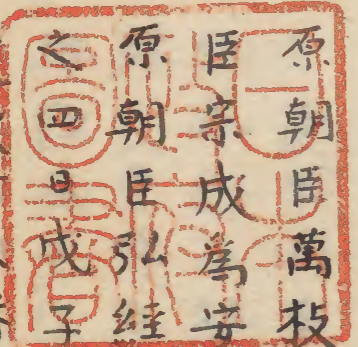 原朝臣萬枚
臣宗成為安
原朝臣弘經
之四日戊子